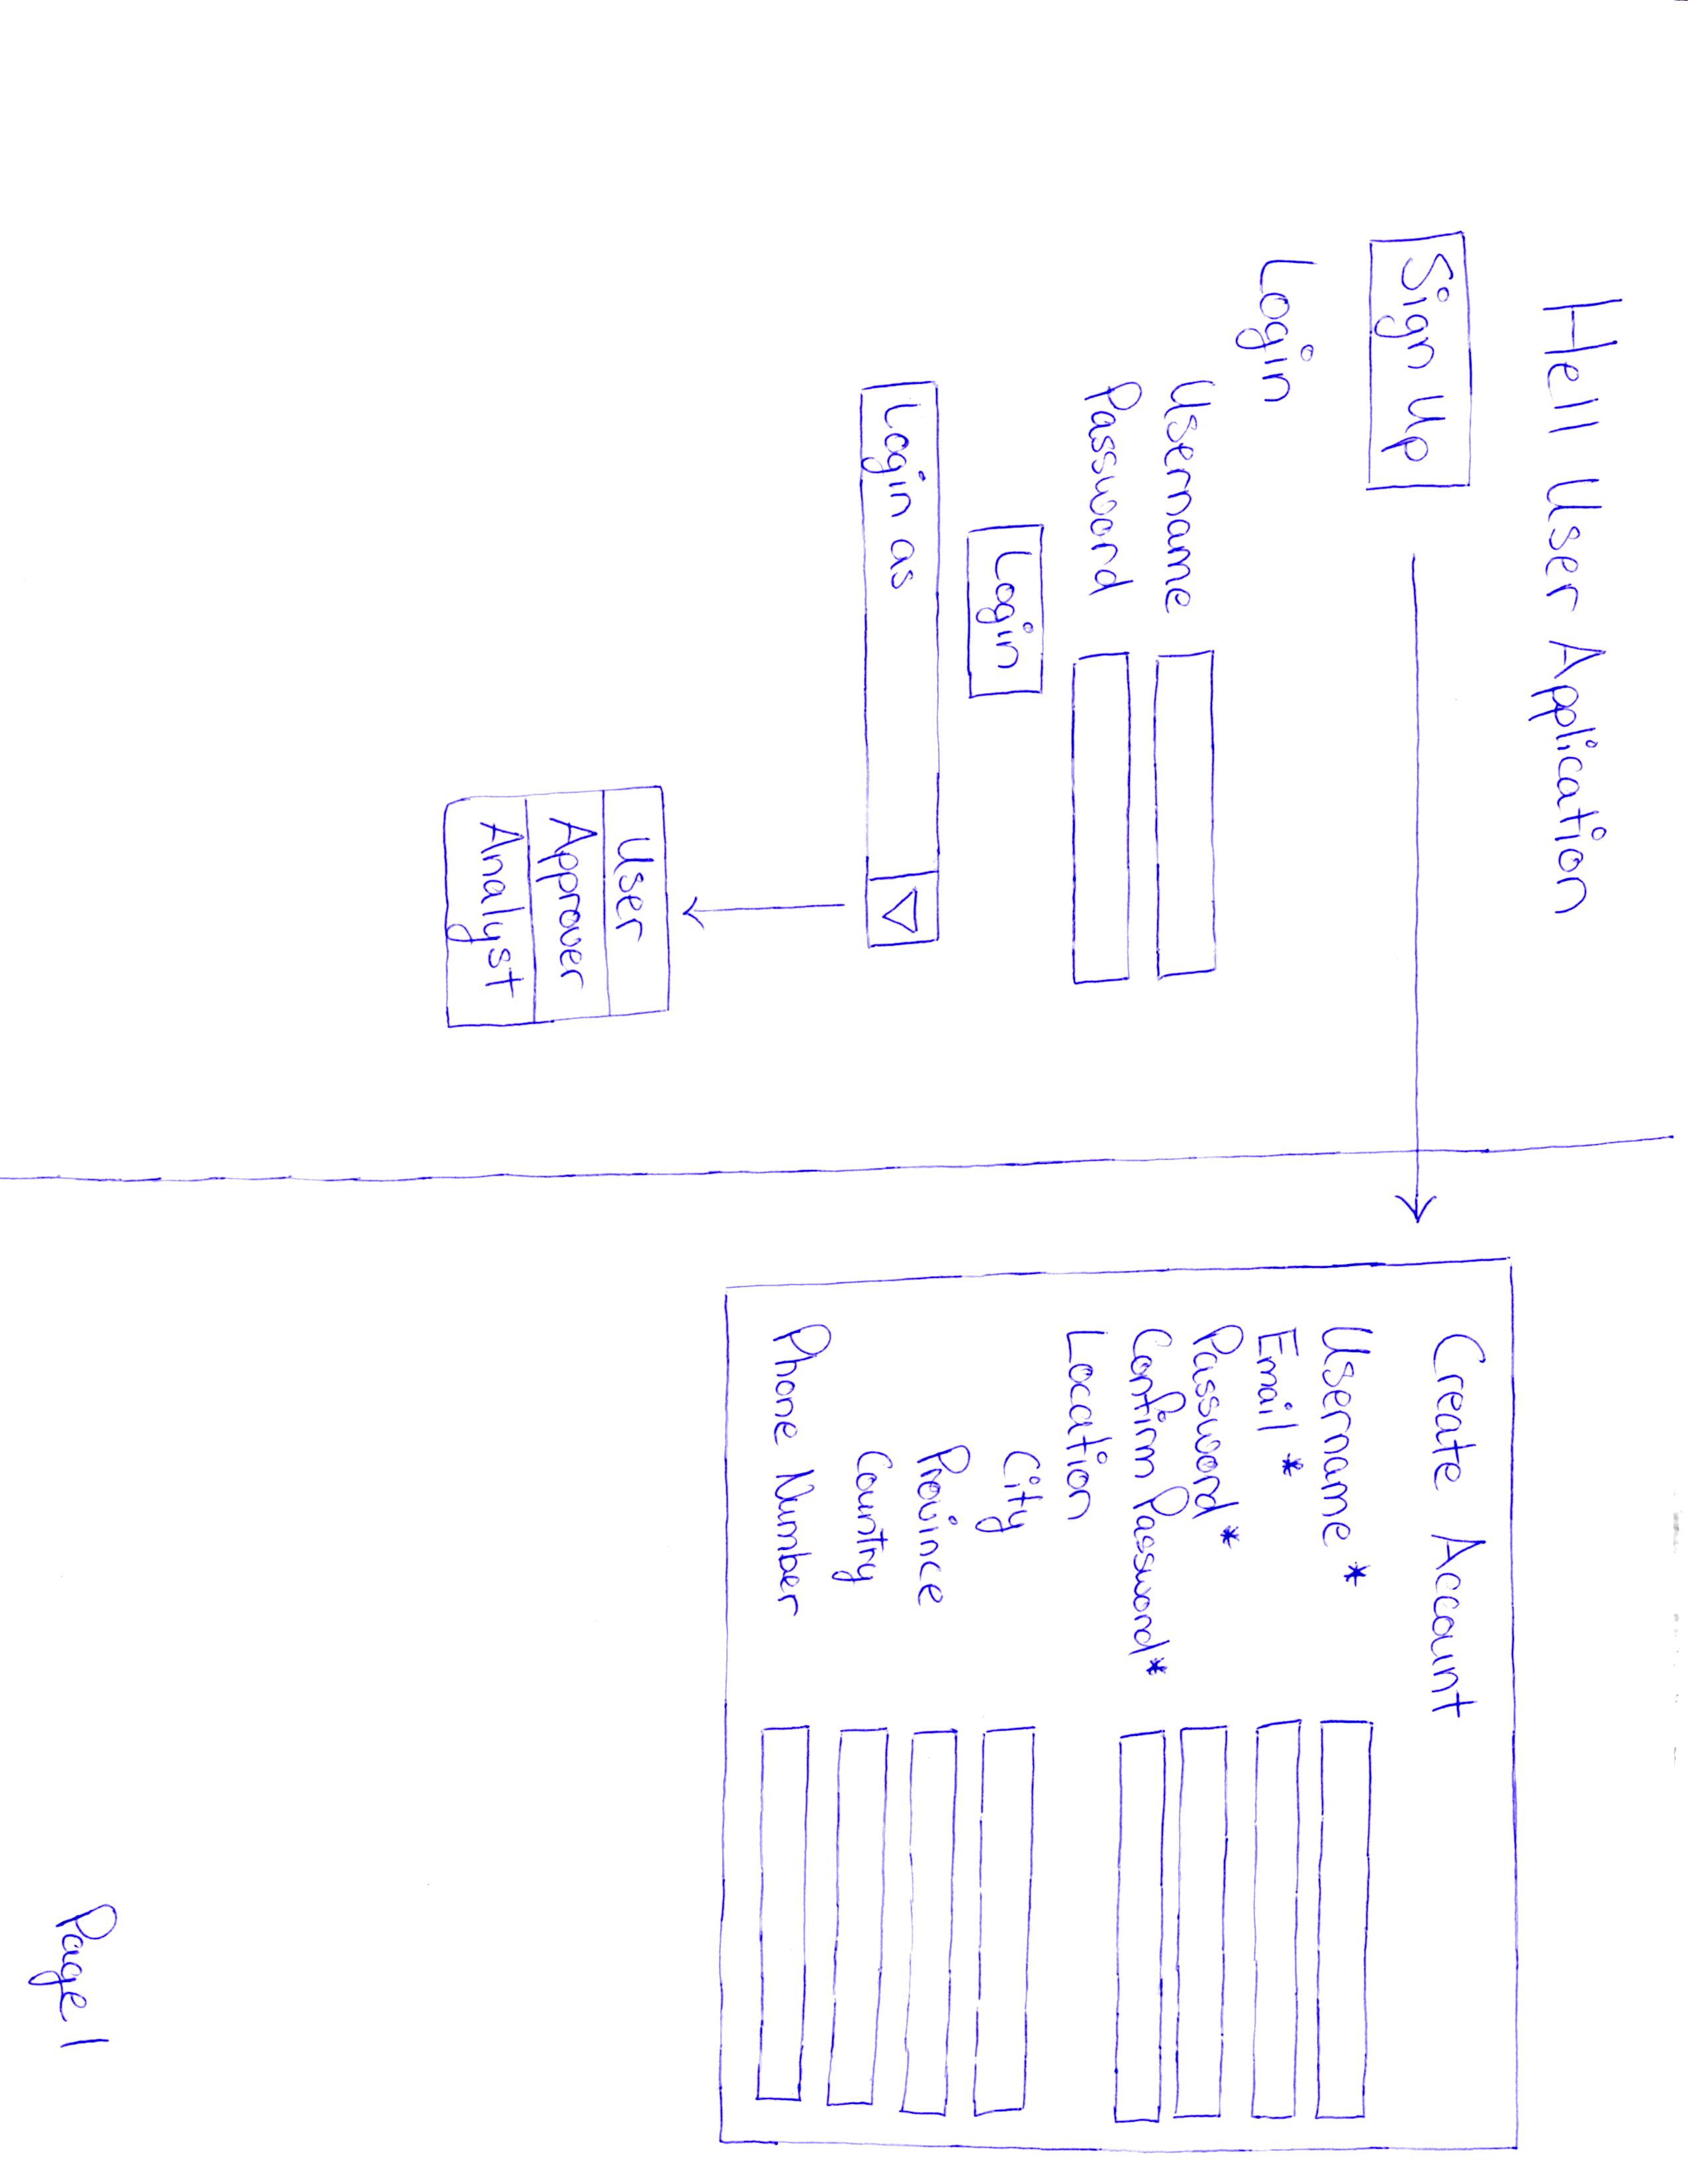 Hell User Application
Sign Up
Login
Username
Password
Login
Login as
User
Approver
Analyst
Create Account
Username *
Email *
Password *
Confirm Password *
Location
City
Province
Country
Phone Number
Page 1